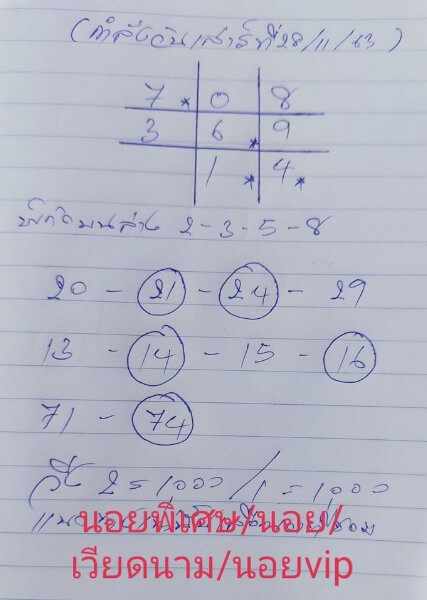 (กำลังวันเสาร์ที่28/11/63)
7 * 0 8
3 6 * 9
1 * 4 *
พิกัดบนล่าง 2-3-5-8
20 - 21 - 24 - 29
13 - 14 - 15 - 16
71 - 74
วิ่ง 2=1000/1=1000
นอยพิเศษ/นอย/
เวียดนาม/นอยvip